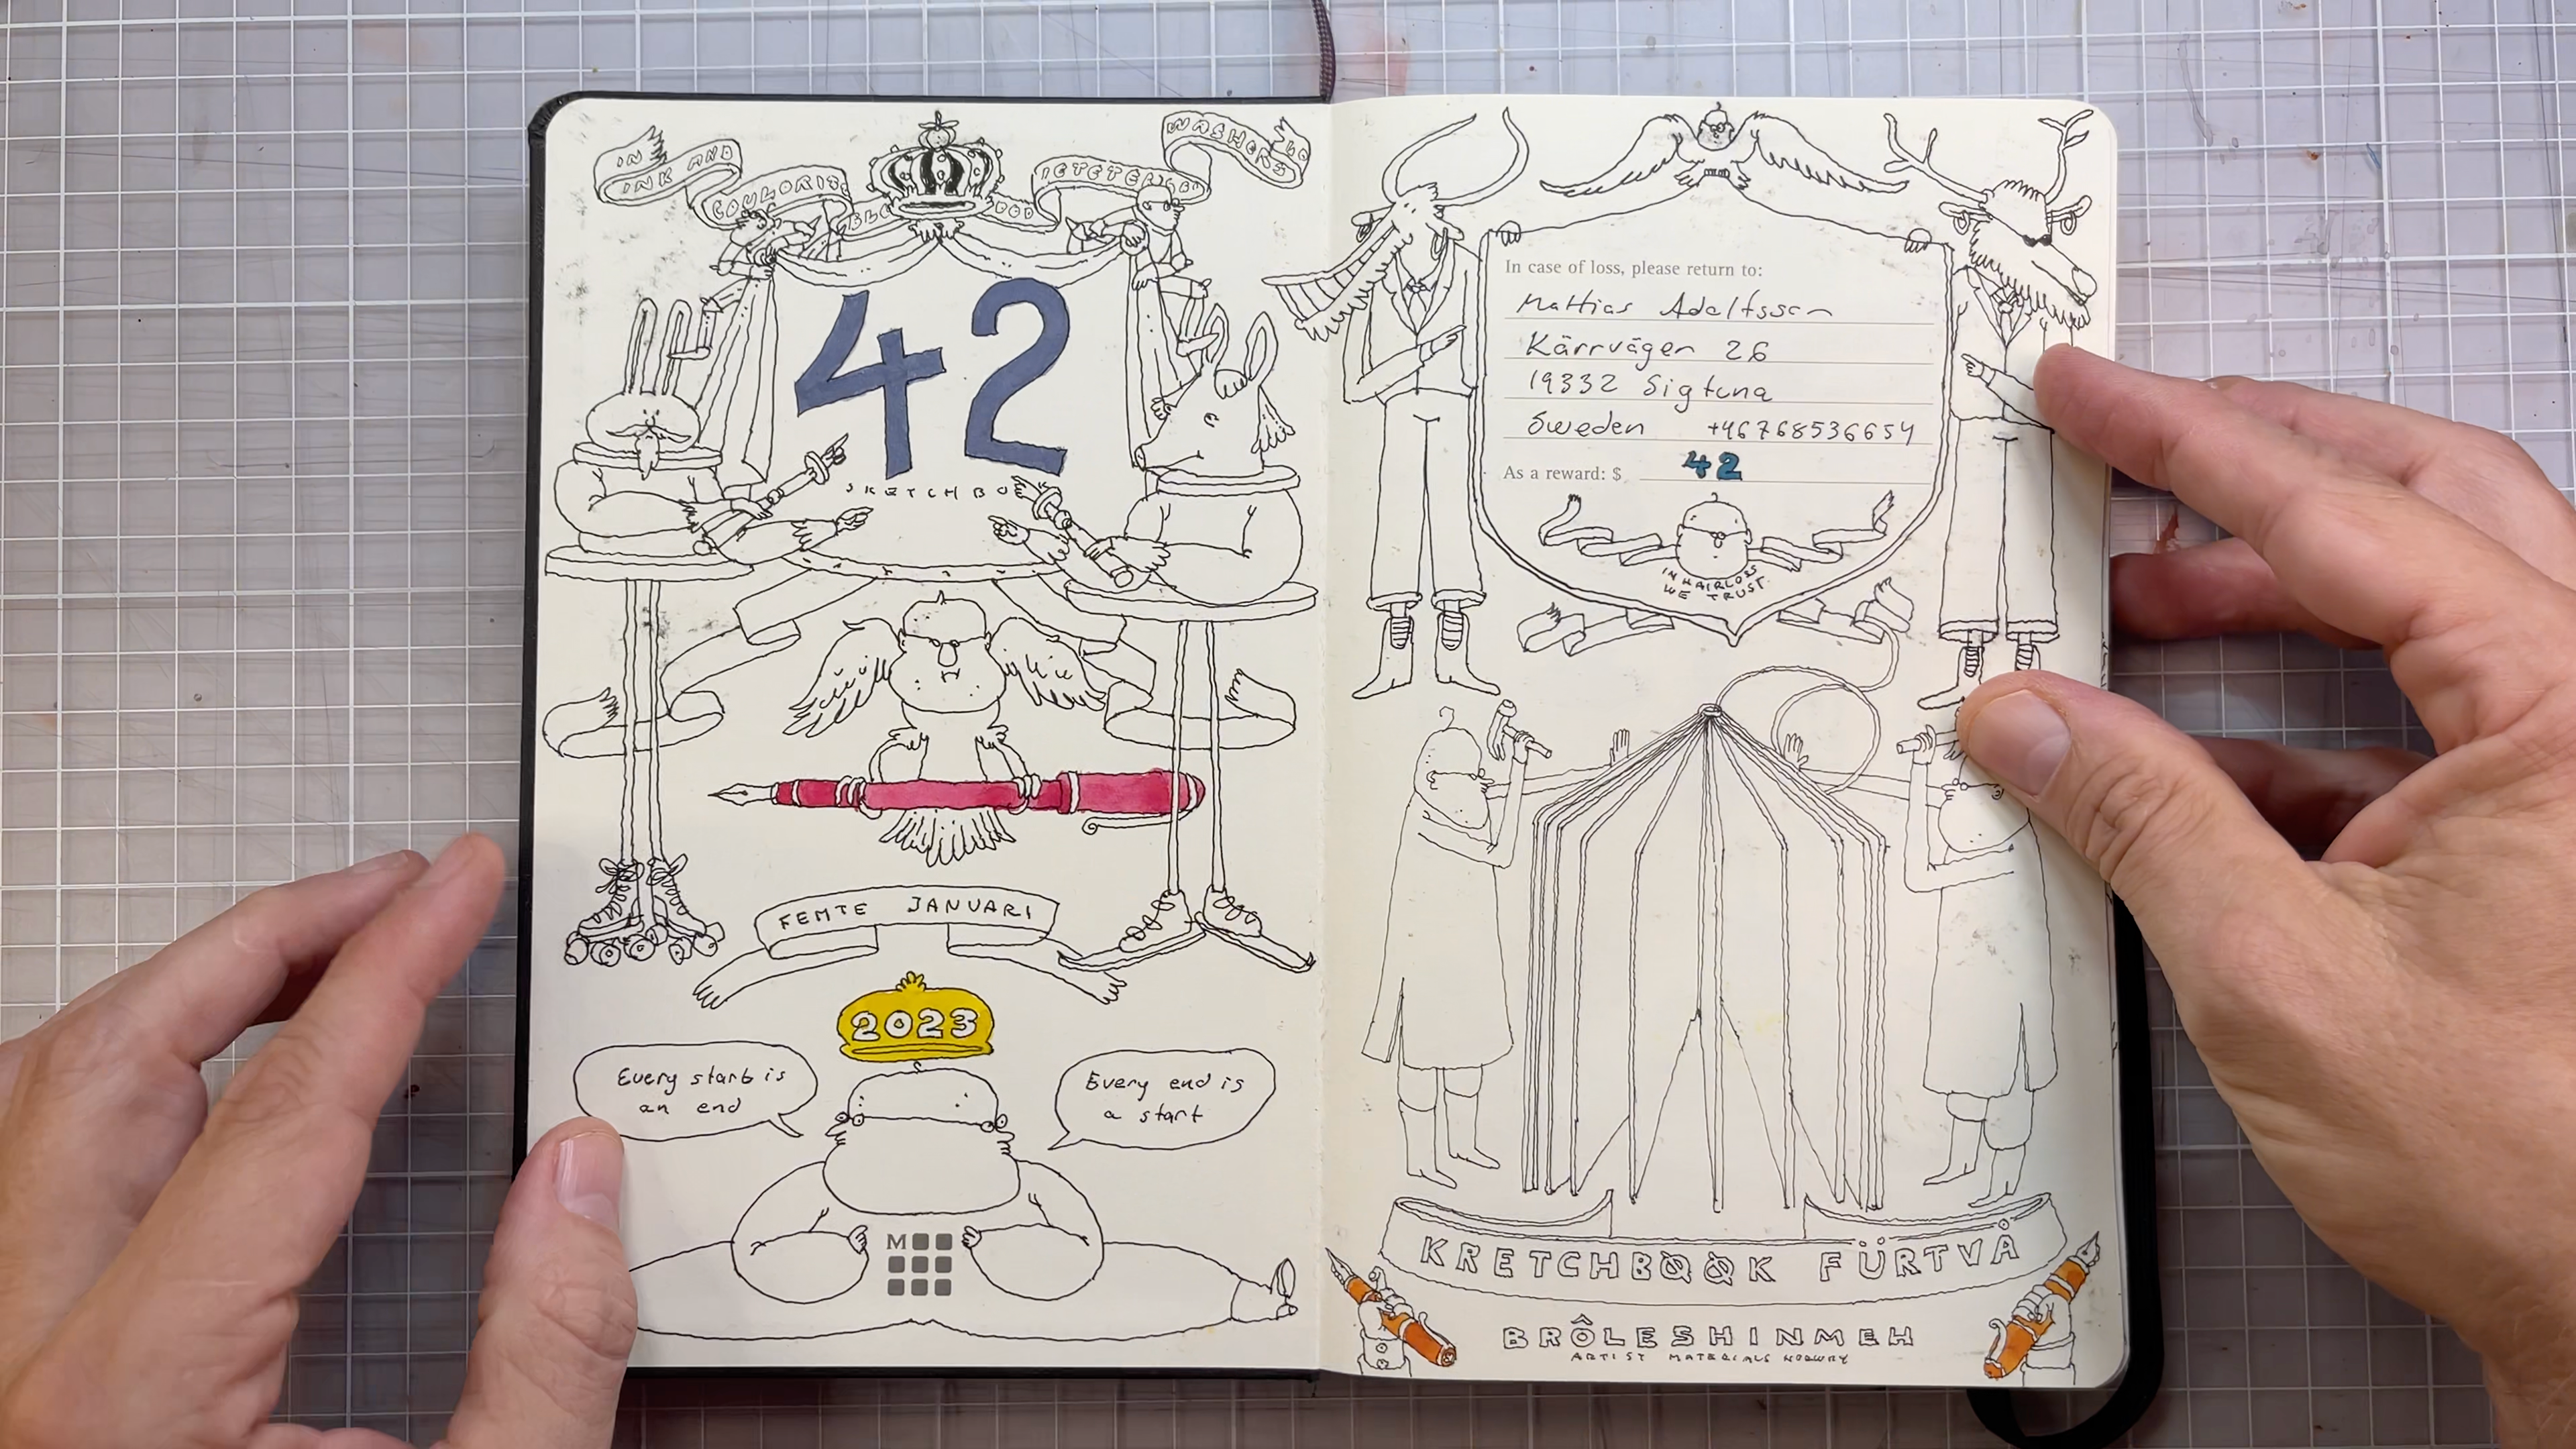 IN
INK AND
COULORIS
WASHERS
42
SKETCHBOOK
FEMTE JANUARI
2023
Every start is
an end
Every end is
a start
M
In case of loss, please return to:
Mattias Adolfsson
Kärrvägen 26
19332 Sigtuna
Sweden +46768536654
As a reward: $ 42
IN HAIRLOSS
WE TRUST
KRETCHBØØK FÜRTVÅ
BRÔLESHINMEH
ARTIST MATERIALS NORWRY